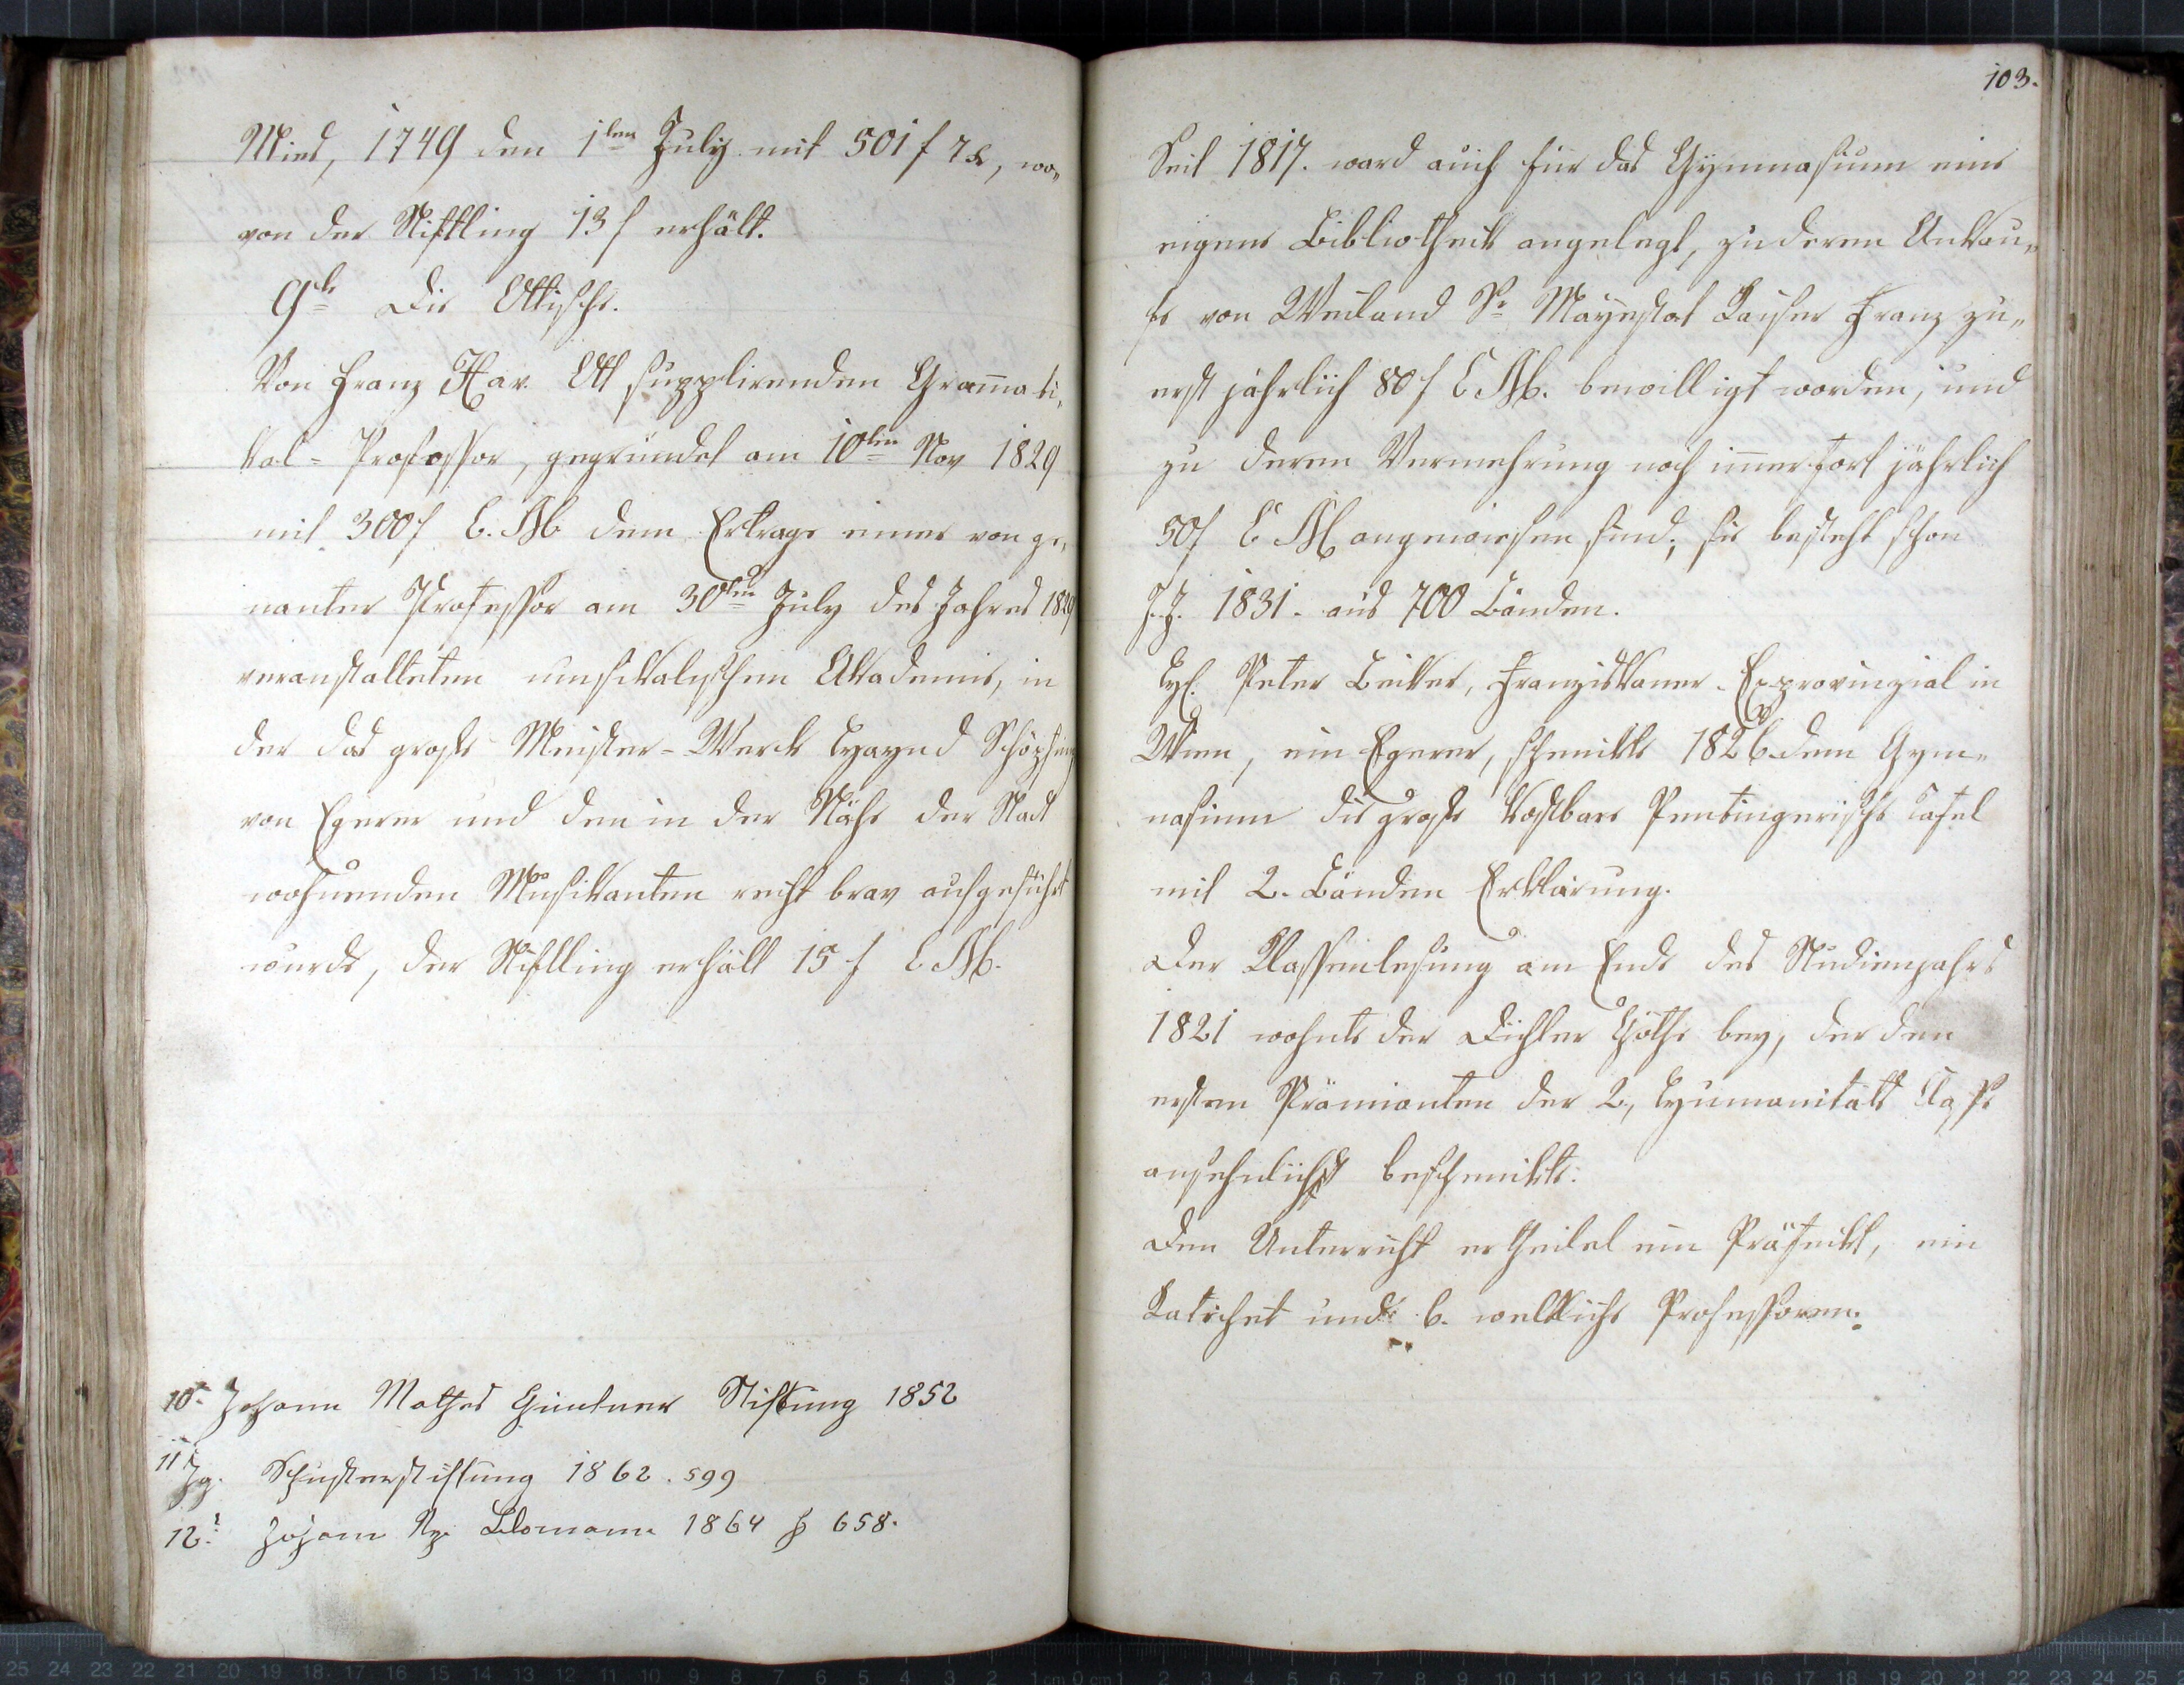 Mies, 1749 den 1ten July mit 501 f 7 x, wo„
von der Stiftling 13 f erhält.
9te Die Ottische.
Von Franz Xav. Ott supplirenden Gram̄ati„
kal-Professor, gegründet am 10ten Nov 1829
mit 300 f C. M dem Ertrage einer von ge„
nanter Professor am 30ten July des Jahres 1829
veranstalteten musikalischen Akademie, in
der das große Meister-Werk Haynd Schöpfung
von Egerer und den in der Nähe der Stadt
wohnenden Musikanten recht brav aufgeführt
wurde, der Stiftling erhält 15 f C. M.
10. Johann Mathes Gintner Stiftung 1852
11 Schusterstiftung 1862. 599
12. Johann Lidomann 1864 f 658.
103.
Seit 1817. ward auch für das Gymnasium eine
eigene Bibliothek angelegt, zu deren Ankau„
fe von Weiland Sr Mayestät Kaiser Franz zu„
erst jährlich 80 f C. M. bewilligt worden, und
zu deren Vermehrung noch im̄erfort jährlich
50 f C M angewiesen sind; sie besteht schon
J. J. 1831. aus 700 Bänden.
H. Peter Becker, Franziskaner-Exprovinzial in
Wien, ein Egerer, schenkte 1826 dem Gym„
nasium die große kostbare Peutingerische Tafel
mit 2. Bänden Erklärung.
Der Klassenlesung am Ende des Studienjahrs
1821 wohnte der Dichter Göthe bey, der den
ersten Prämianten der 2, Humanitäts Classe
ansehnlichst beschenkte.
Den Unterricht ertheilet ein Präfeckt, ein
Katechet und 6. weltliche Professoren.